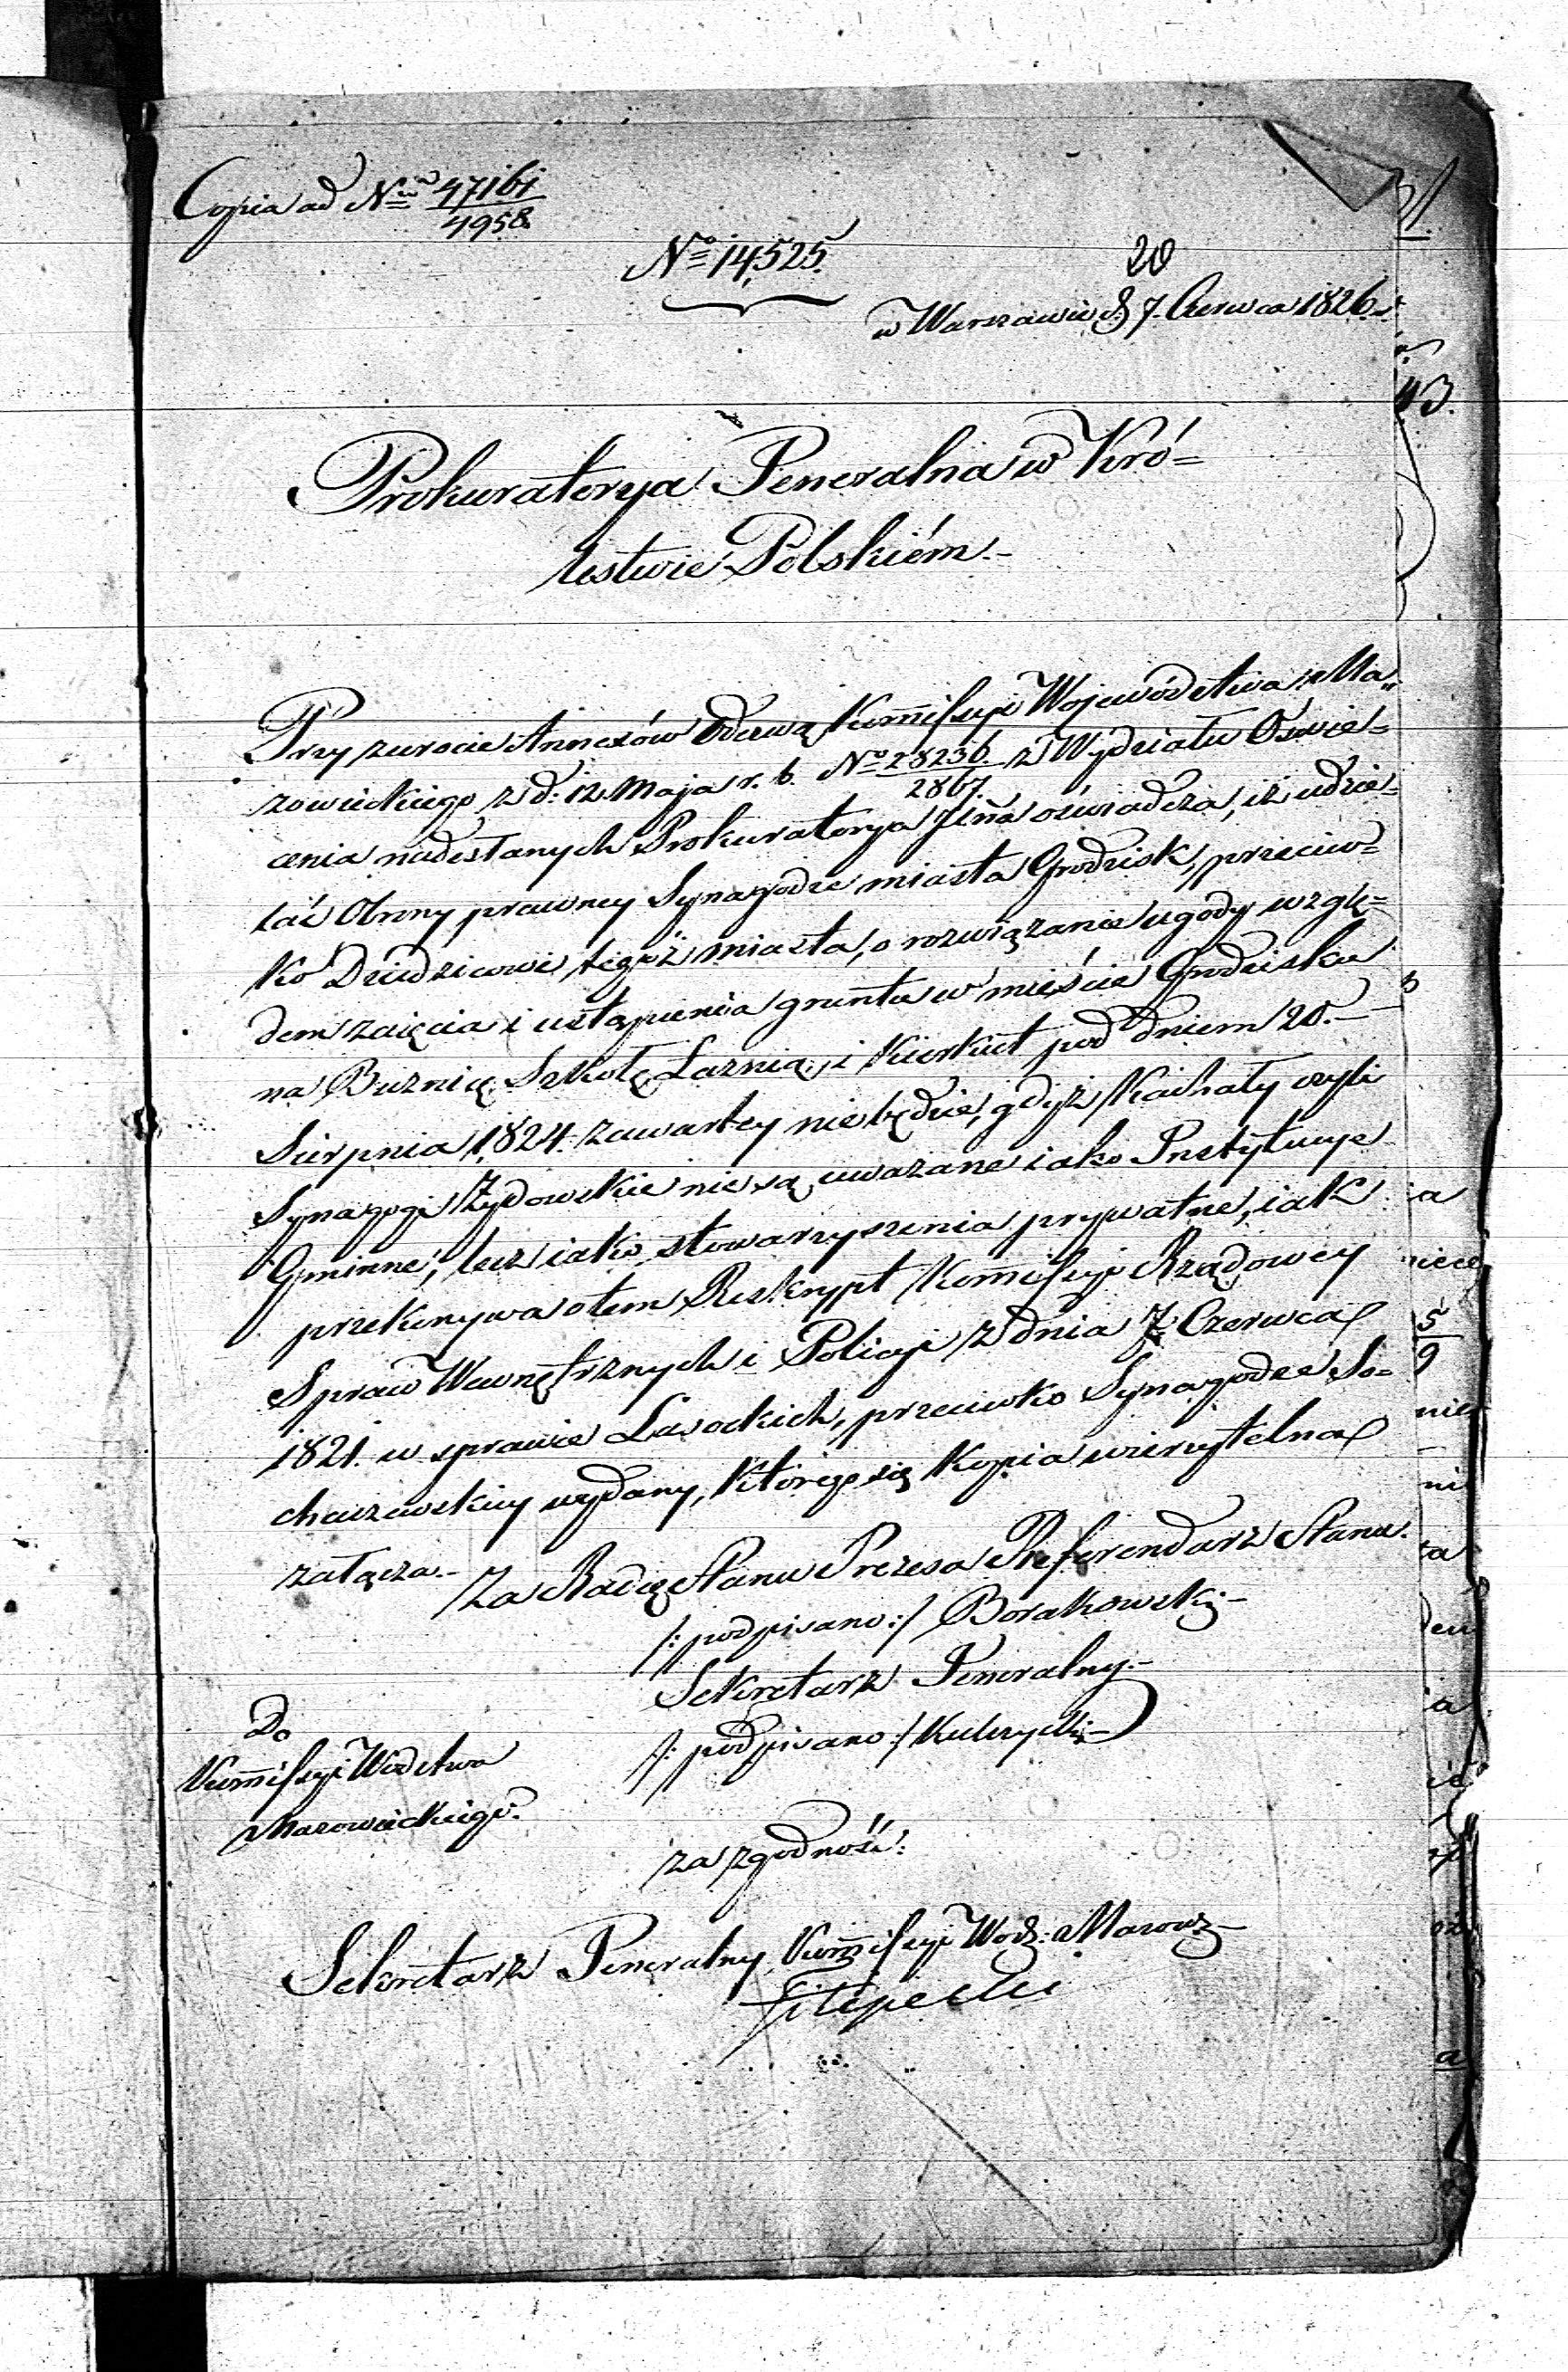 Copia ad Nrum 47161/4958.
No 14,525.
20
w Warszawie d. 7. Czerwca 1826.
Prokuratorya Jeneralna w Kró=
lestwie Polskiém.-
Przy zwrocie Annexów Odezwą Kommissyi Województwa Ma„
zowieckiego z d: 12. Maja r. b. No 28236./2867. z Wydziału Oświe=
cenia nadesłanych Prokuratorya Jlna oświadcza, iż udzie=
lać Obrony prawney Synagodze miasta Grodzisk, przeciw=
ko Dziedzicowi tegoż miasta, o rozwiązanie ugody wzglę=
dem zaięcia i ustąpienia gruntu w mieście Grodzisku
na Bużnicę Szkołę Łaznią, i Kierkut pod dniem 20.-
Sierpnia 1824. zawartey nie będzie, gdyż Kachały czyli
Synagogi Żydowskie nie są uważane iako Instytucye
Gminne, lecz iako stowarzyszenia prywatne, iak
przekonywa o tem Reskrypt Kommissyi Rządowey
Spraw Wewnętrznych i Policyi z dnia 7. Czerwca
1821. w sprawie Lasockich, przeciwko Synagodze So=
chaczewskiey wydany, którego się Kopia wierzytelna
załącza.-
Za Radcę Stanu Prezesa Referendarz Stanu.
/: podpisano :/ Borakowski-
Sekretarz Jeneralny.-
/: podpisano :/ Kulczycki-
Do
Kommissyi Wodztwa
Mazowieckiego.
za zgodność:
Sekretarz Jeneralny Kommissyi Wodz: Mazow:-
Filipecki